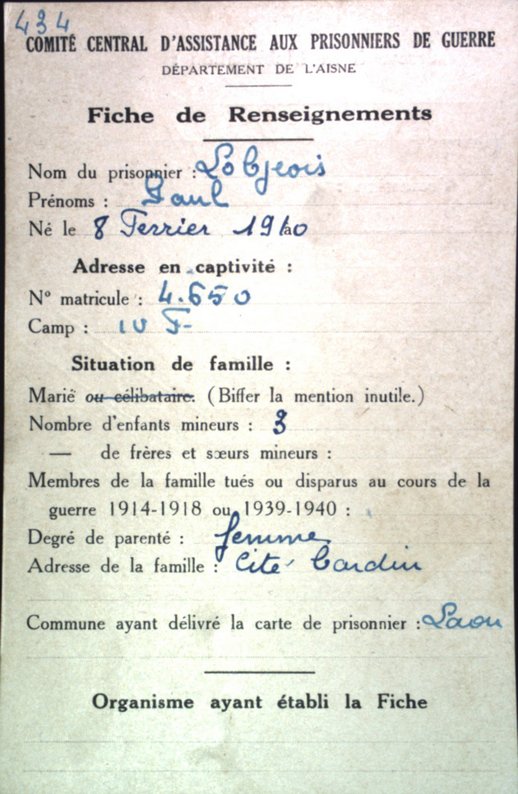 434
COMITÉ CENTRAL D'ASSISTANCE AUX PRISONNIERS DE GUERRE
DÉPARTEMENT DE L'AISNE
Fiche de Renseignements
Nom du prisonnier : Lobjeois
Prénoms : Paul
Né le 8 Ferrier 1910 à
Adresse en captivité :
N° matricule : 4.650
Camp : IV F
Situation de famille :
Marié ou célibataire. (Biffer la mention inutile.)
Nombre d'enfants mineurs : 3
— de frères et sœurs mineurs :
Membres de la famille tués ou disparus au cours de la
guerre 1914-1918 ou 1939-1940 :
Degré de parenté : femme
Adresse de la famille : Cité Cardin
Commune ayant délivré la carte de prisonnier : Laon
Organisme ayant établi la Fiche